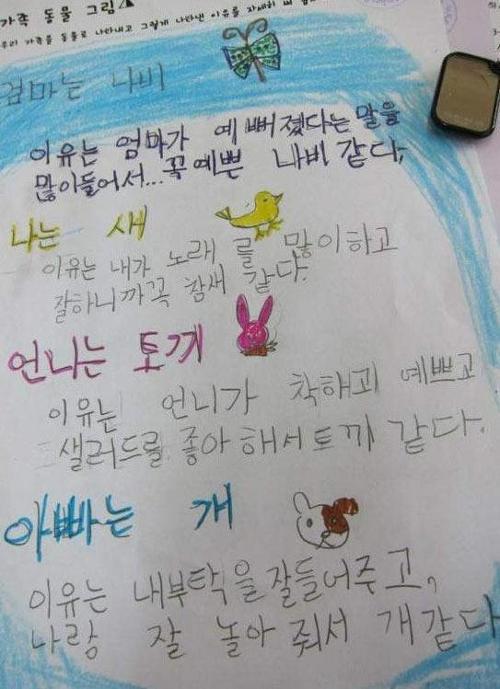 가족 동물 그림
우리 가족을 동물로 나타내고 그렇게 나타낸 이유를 자세히 써
엄마는 나비
이유는 엄마가 예뻐졌다는 말을
많이들어서...꼭예쁜 나비 같다,
나는 새
이유는 내가 노래 를 많이하고
잘하니까꼭 참새 같다.
언니는 토끼
이유는 언니가 착해고 예쁘고
샐러드를 좋아 해서토끼 같다.
아빠는 개
이유는 내부탁을잘들어주고,
나랑 잘 놀아 줘서 개같다